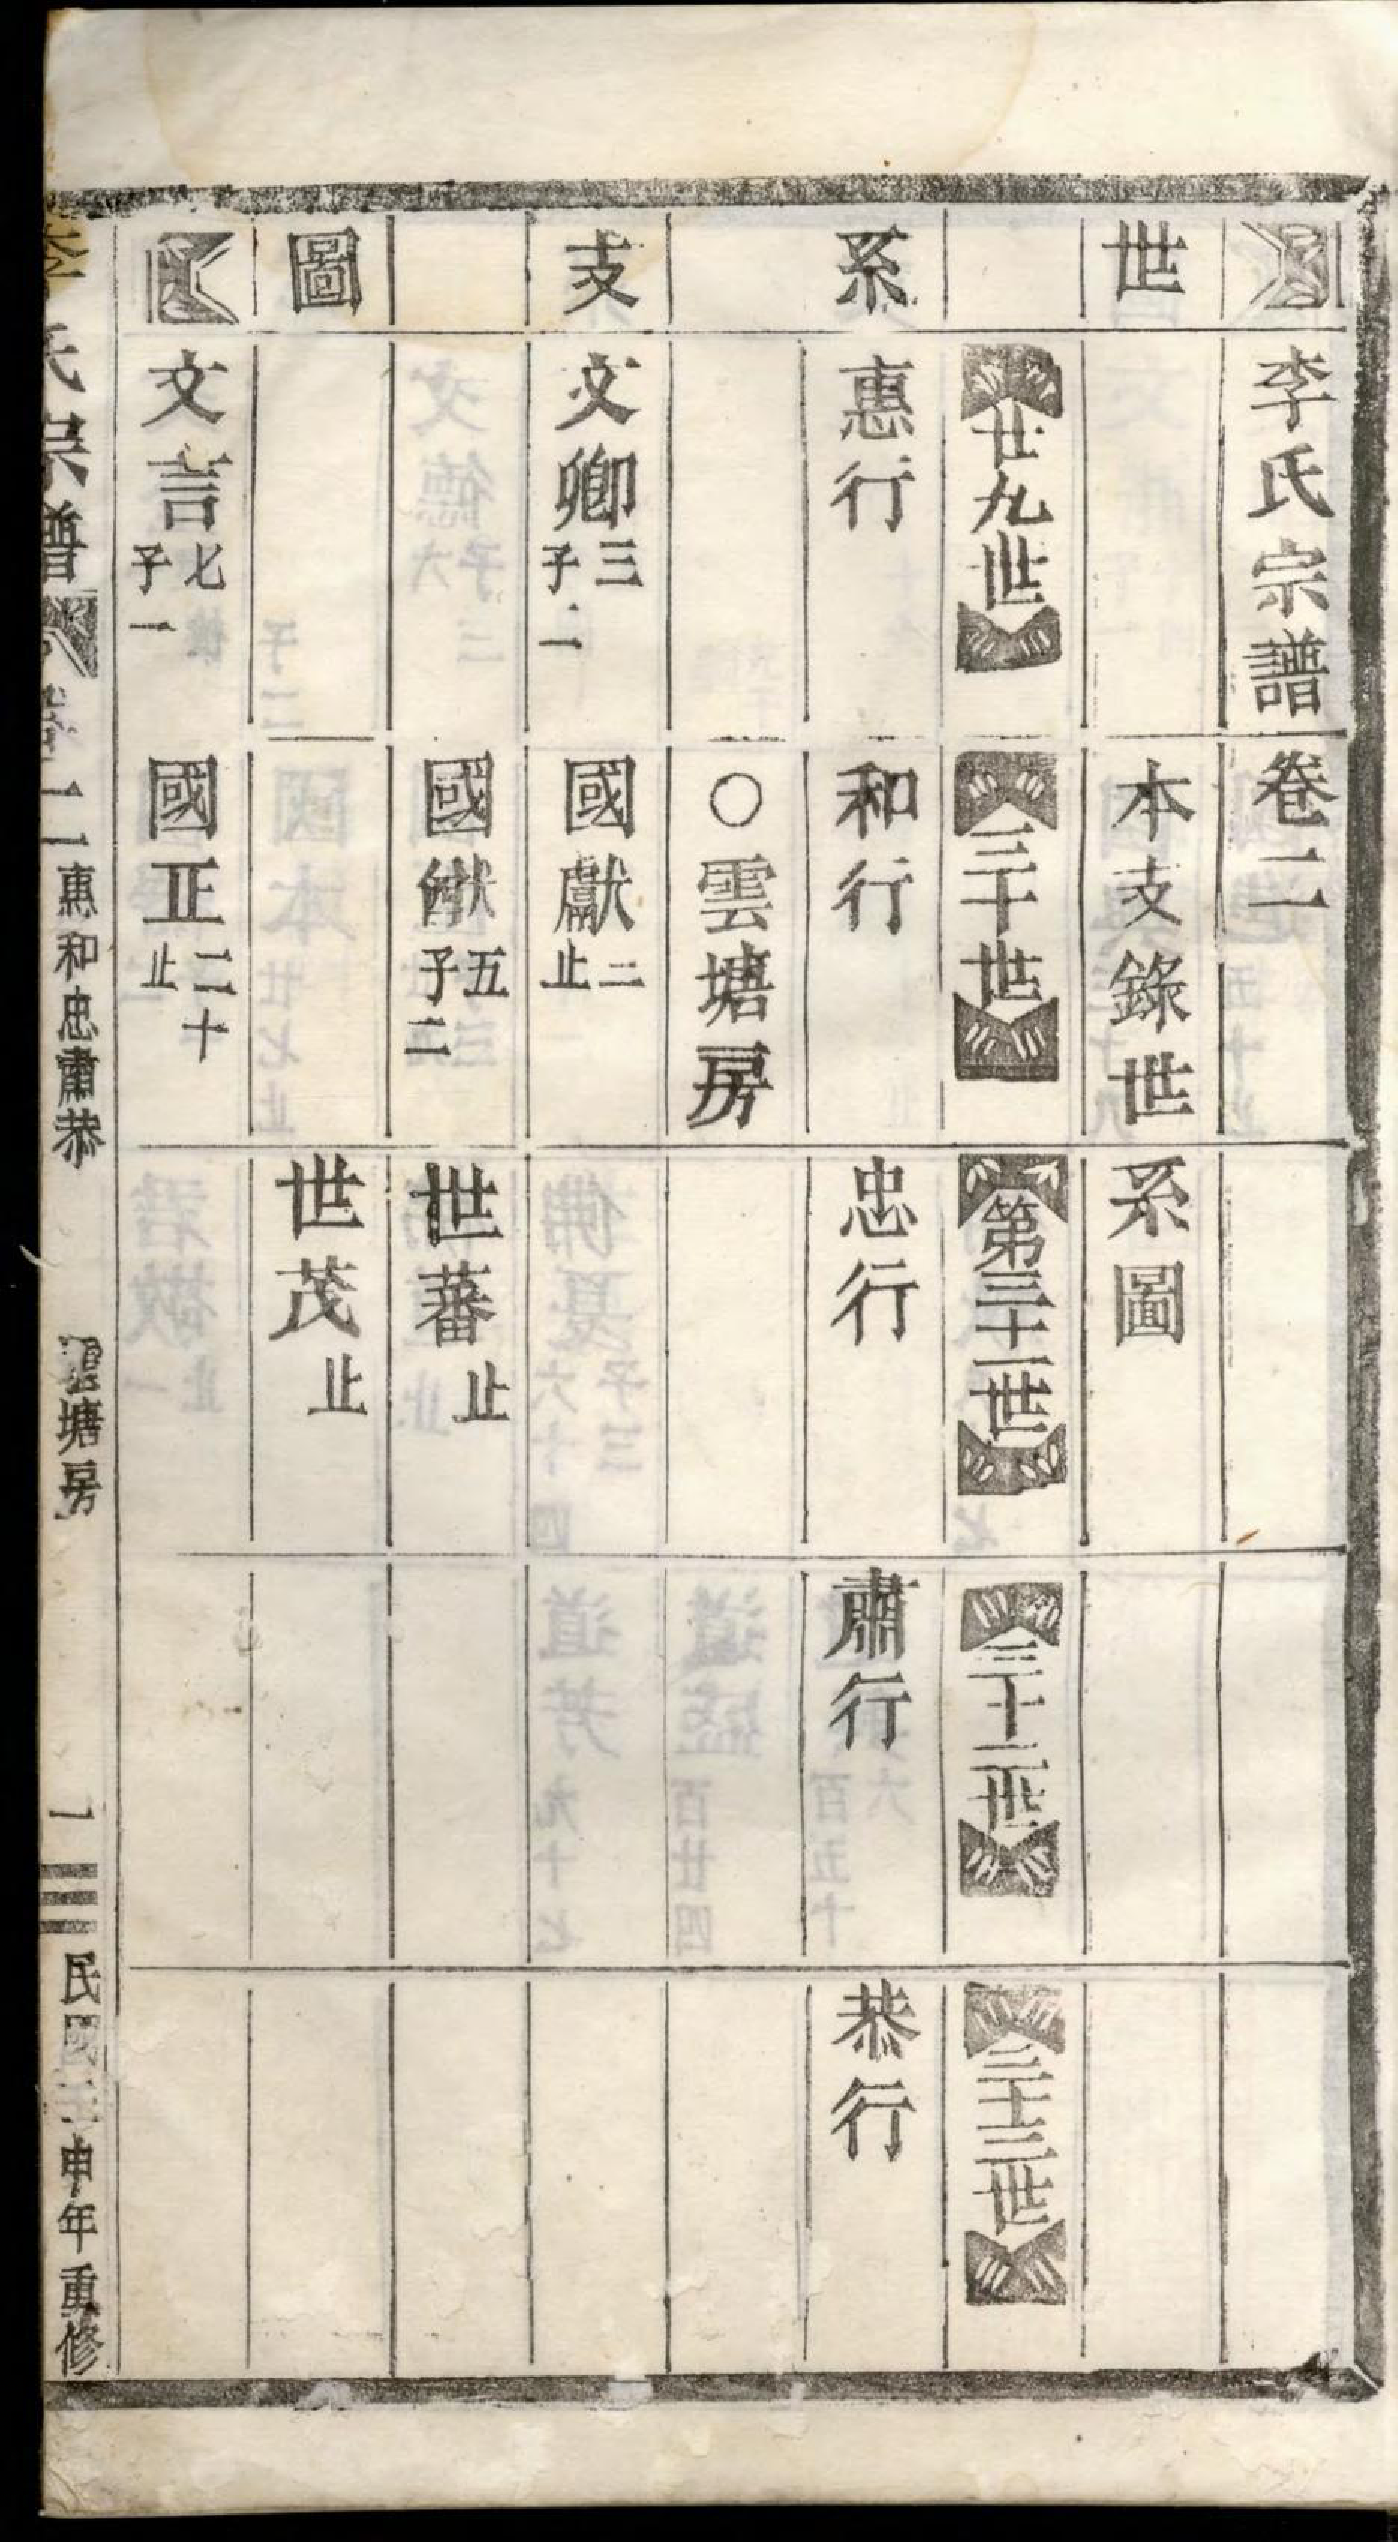 世系支圖
李氏宗譜卷二
本支錄世系圖
廿九世
三十世
第三十一世
三十二世
三十三世
惠行
和行
忠行
肅行
恭行
○雲塘房
文卿三子二
國獻二止
國猷五子二
世蕃止
世茂止
文言七子一
國正二十止
李氏宗譜
卷二
惠和忠肅恭
雲塘房
一
民國壬申年重修